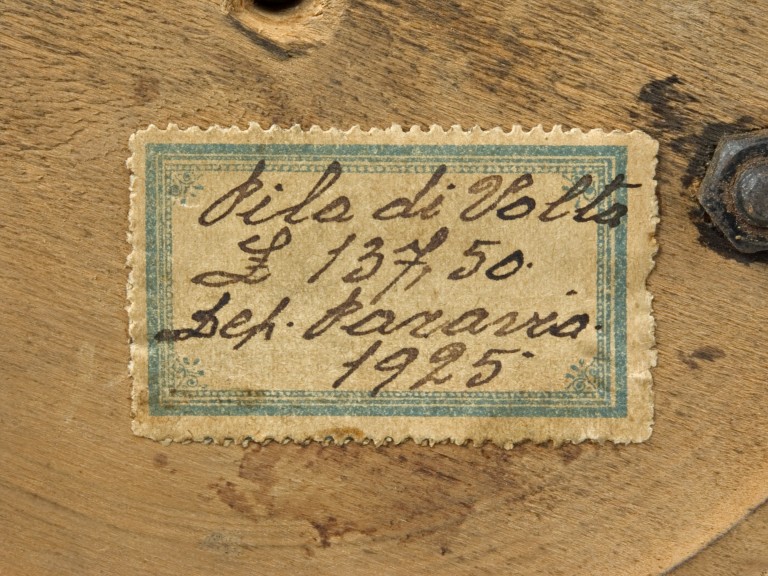 Pila di Volta
£ 137,50.
Dep. Paravia.
1925